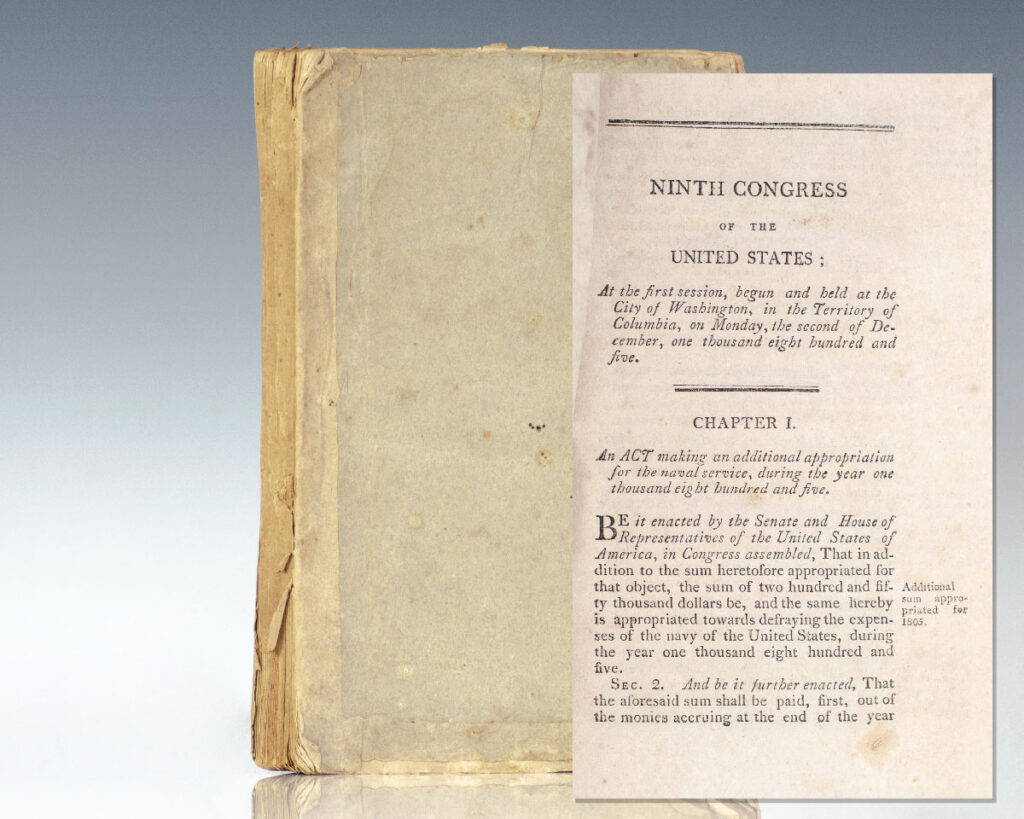 NINTH CONGRESS
OF THE
UNITED STATES ;
At the first session, begun and held at the
City of Washington, in the Territory of
Columbia, on Monday, the second of De-
cember, one thousand eight hundred and
five.
CHAPTER I.
An ACT making an additional appropriation
for the naval service, during the year one
thousand eight hundred and five.
BE it enacted by the Senate and House of
Representatives of the United States of
America, in Congress assembled, That in ad-
dition to the sum heretofore appropriated for
that object, the sum of two hundred and fif-
ty thousand dollars be, and the same hereby
is appropriated towards defraying the expen-
ses of the navy of the United States, during
the year one thousand eight hundred and
five.
Additional
sum appro-
priated for
1805.
SEC. 2. And be it further enacted, That
the aforesaid sum shall be paid, first, out of
the monies accruing at the end of the year